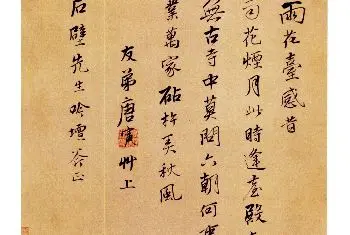 雨花臺感昔
司花煙月此時逢臺殿
無古寺中莫問六朝何
業萬家砧杵美秋風
友弟唐寅艸上
石壁先生吟壇
正